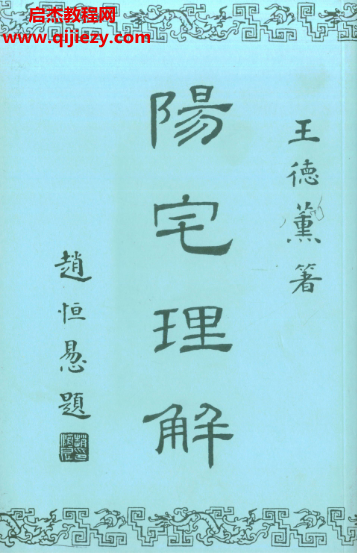 启杰教程网
www.qijiezy.com
王德薰著
陽宅理解
趙恒惖題